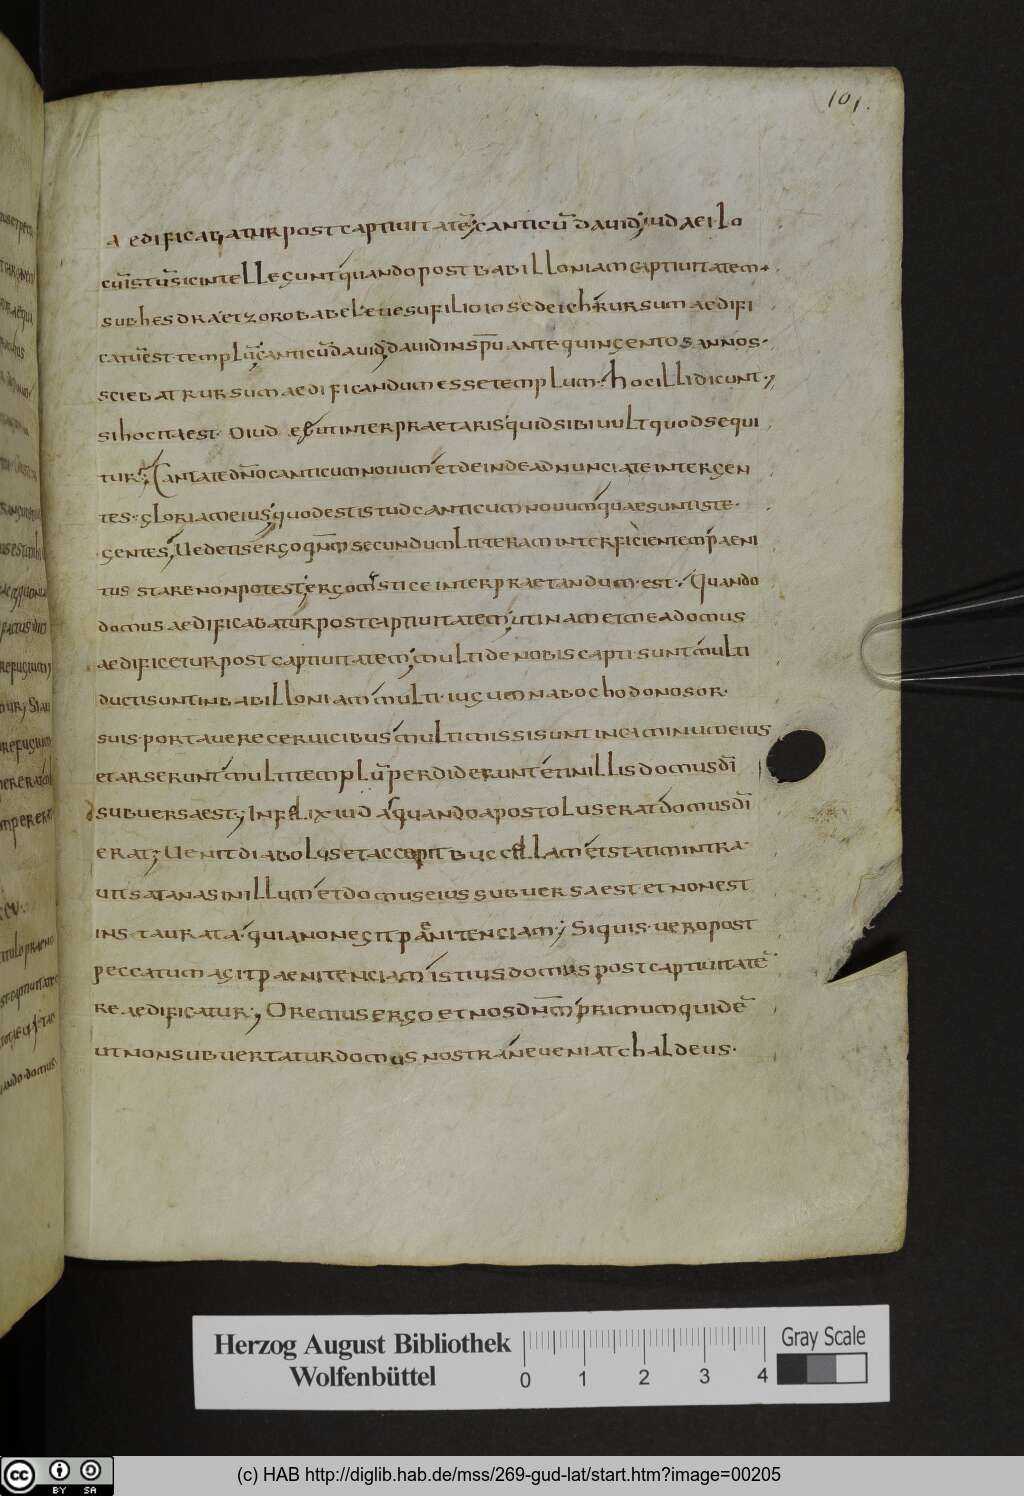 101.
aedificabatur post captiuitatē; canticū dauid; iudaei lo
cū istū sic intellegunt quando post babilloniam captiuitatem
sub hesdra et zorobabel et iesu filio iosedeich rursum aedifi
catū est templū; canticū dauid; dauid in spū ante quingentos annos
sciebat rursum aedificandum esse templum; hoc illi dicunt;
si hoc ita est
ut interpraetaris quid sibi uult quod sequi
tur; Cantate dño canticum nouum et deinde adnunciate inter gen
tes gloriam eius; quod est istud canticum nouum quae sunt iste
gentes; Uedetis ergo qñm secundum litteram interficientem paeni
tus stare non potest; ergo
interpraetandum est; Quando
domus aedificabatur post captiuitatem; utinam et mea domus
aedificetur post captiuitatem; multi de nobis capti sunt multi
ducti sunt in babilloniam multi iugum nabochodonosor
suis portauere ceruicibus multi missi sunt in caminum eius
et arserunt multi templū perdiderunt et in illis domus dī
subuersa est; Infelix iudas quando apostolus erat domus dī
erat; Uenit diabolus et accepit buccellam et statim intra
uit satanas in illum et domus eius subuersa est et non est
instaurata quia non egit paenitenciam; Si quis uero post
peccatum agit paenitenciam istius domus post captiuitatē
re aedificatur; Oremus ergo et nos dñm primum quidē
ut non subuertatur domus nostra ne ueniat chaldeus
Herzog August Bibliothek
Wolfenbüttel
0 1 2 3 4
Gray Scale
cc BY SA
(c) HAB http://diglib.hab.de/mss/269-gud-lat/start.htm?image=00205